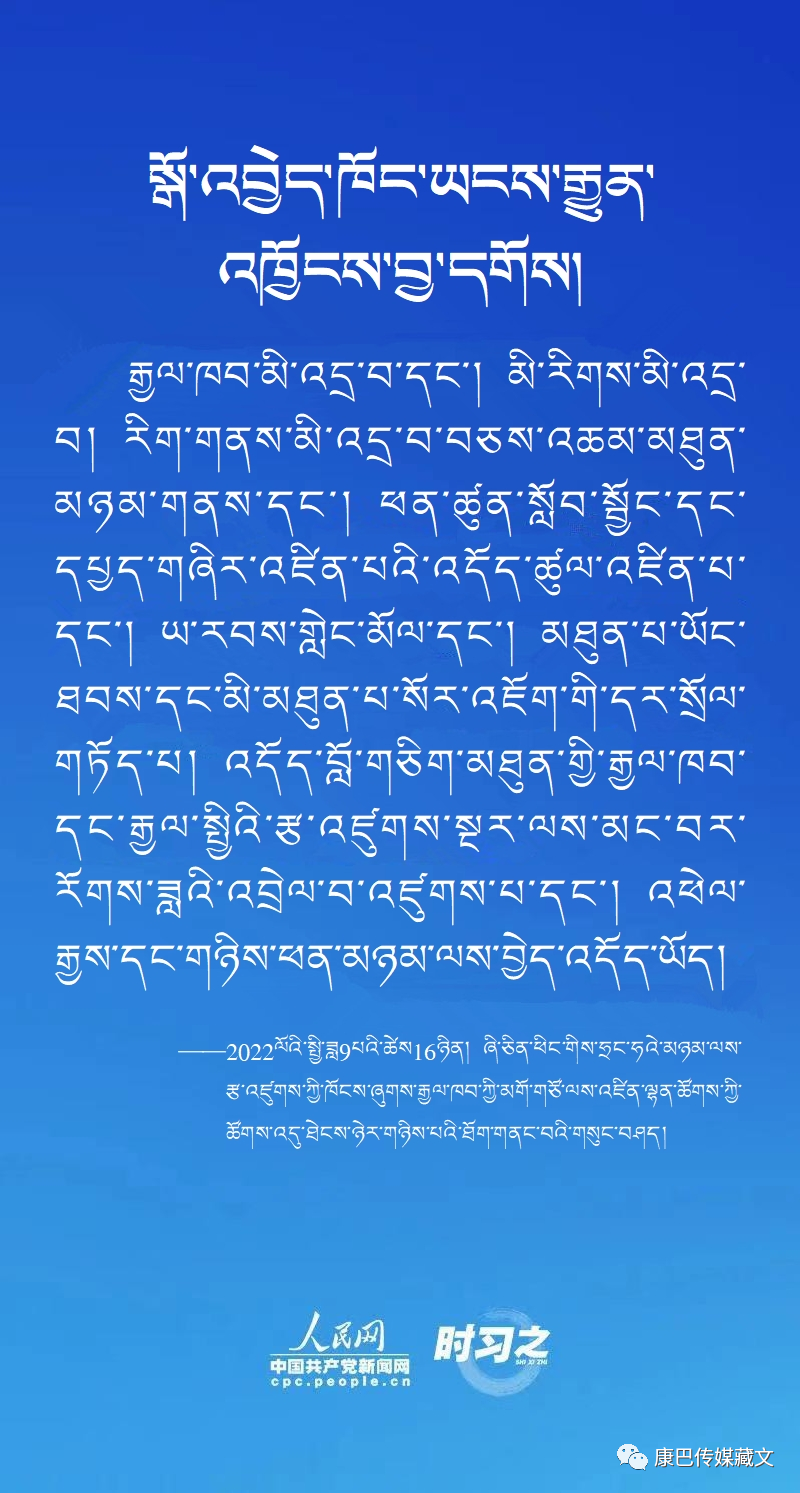 སྒོ་འབྱེད་ཁོང་ཡངས་རྒྱུན་
འཁྱོངས་བྱ་དགོས།
རྒྱལ་ཁབ་མི་འདྲ་བ་དང་། མི་རིགས་མི་འདྲ་
བ། རིག་གནས་མི་འདྲ་བ་བཅས་འཆམ་མཐུན་
མཉམ་གནས་དང་། ཕན་ཚུན་སློབ་སྦྱོང་དང་
དཔྱད་གཞིར་འཛིན་པའི་འདོད་ཚུལ་འཛིན་པ་
དང་། ཡ་རབས་གླེང་མོལ་དང་། མཐུན་པ་ཡོང་
ཐབས་དང་མི་མཐུན་པ་སོར་འཇོག་གི་དར་སྲོལ་
གཏོད་པ། འདོད་བློ་གཅིག་མཐུན་གྱི་རྒྱལ་ཁབ་
དང་རྒྱལ་སྤྱིའི་རྩ་འཛུགས་སྔར་ལས་མང་བར་
རོགས་ཟླའི་འབྲེལ་བ་འཛུགས་པ་དང་། འཕེལ་
རྒྱས་དང་གཉིས་ཕན་མཉམ་ལས་བྱེད་འདོད་ཡོད།
——2022ལོའི་སྤྱི་ཟླ9པའི་ཚེས16ཉིན། ཞི་ཅིན་ཕིང་གིས་ཧྲང་ཧའེ་མཉམ་ལས་
རྩ་འཛུགས་ཀྱི་ཁོངས་ཞུགས་རྒྱལ་ཁབ་ཀྱི་མགོ་གཙོ་ལས་འཛིན་ལྷན་ཚོགས་ཀྱི་
ཚོགས་འདུ་ཐེངས་ཉེར་གཉིས་པའི་ཐོག་གནང་བའི་གསུང་བཤད།
人民网 时习之
中国共产党新闻网 SHI XI ZHI
cpc.people.cn
康巴传媒藏文